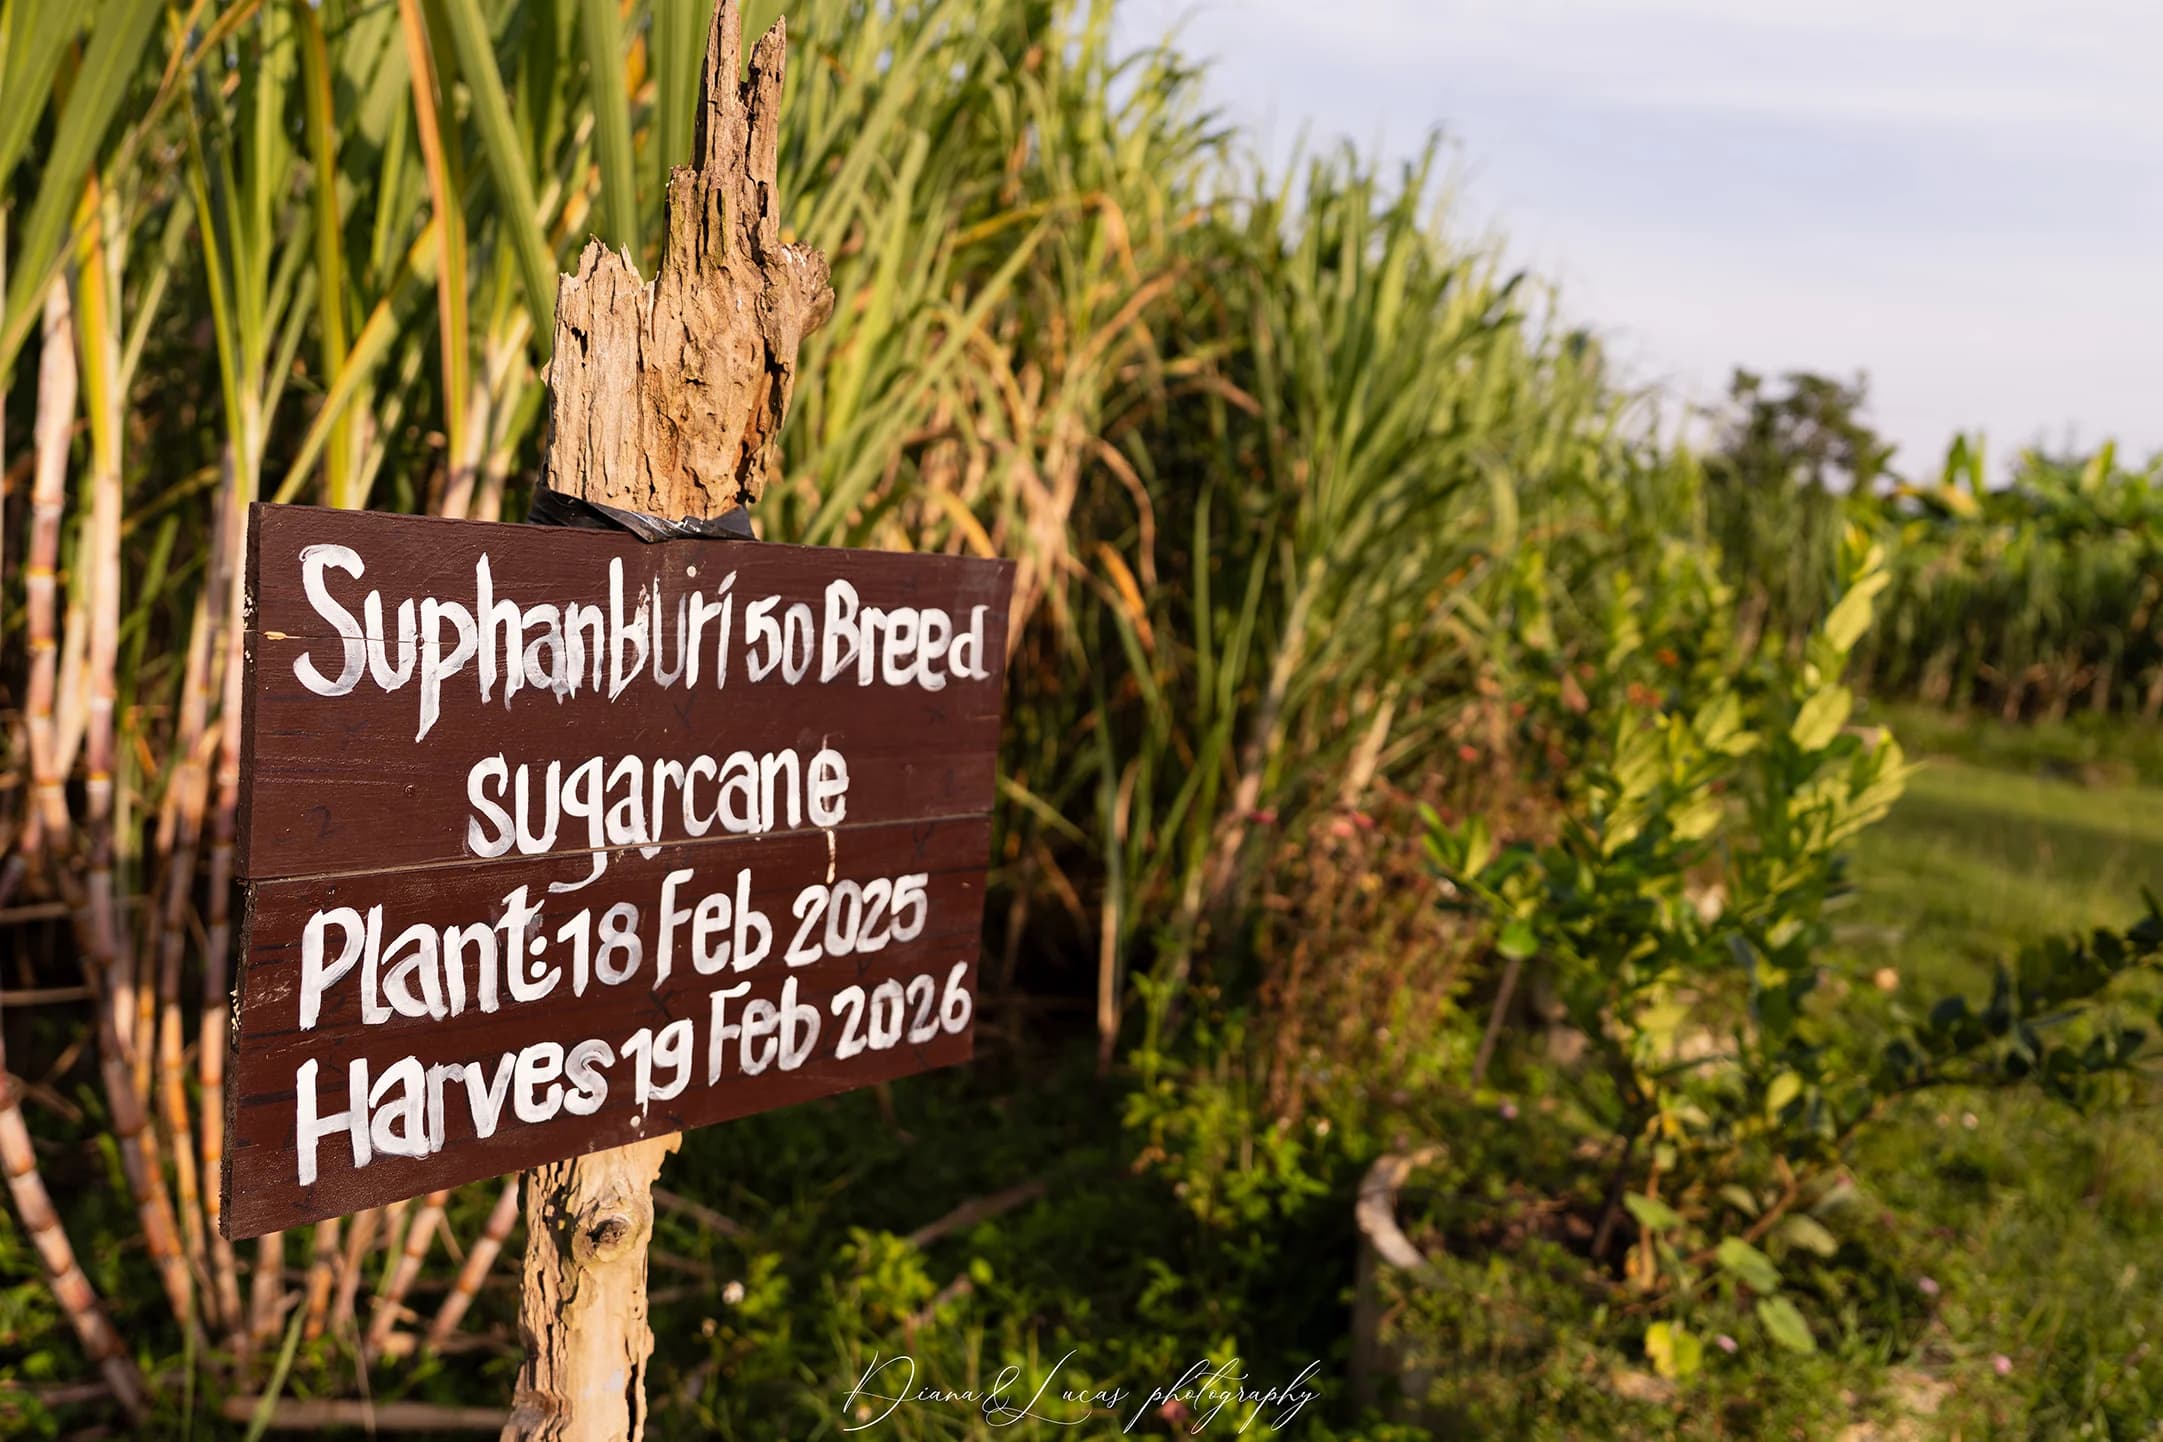 Suphanburi 50 Breed
sugarcane
Plant:18 Feb 2025
Harves19 Feb 2026
Diana & Lucas photography